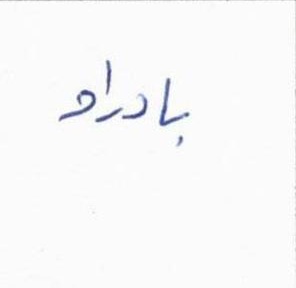 بادراد